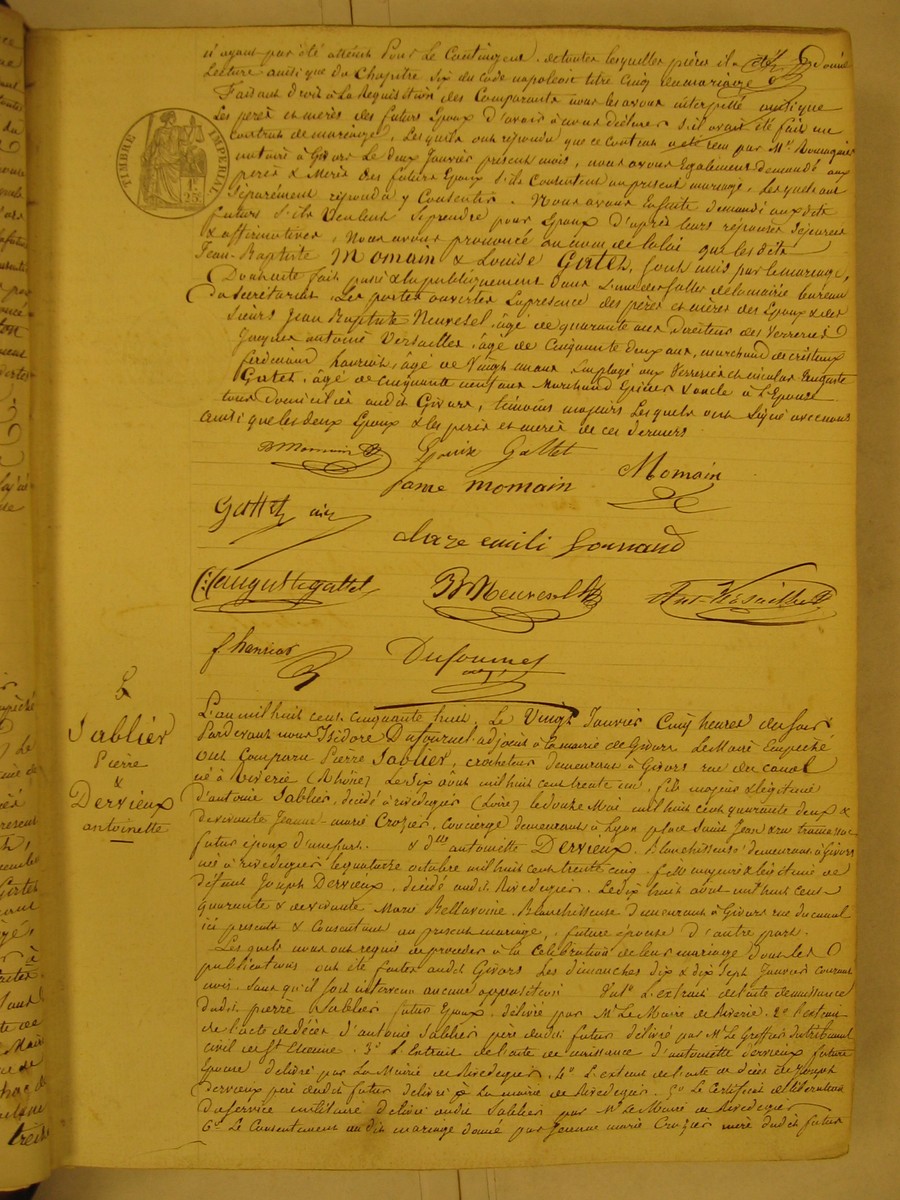 n'ayant pas été atteint pour le Contingent, de toutes lesquelles pièces il a été donné
Lecture ainsi que du Chapitre six du Code napoléon titre Cinq du mariage
Faisant droit à la Requisition des Comparants nous les avons interpellé ainsi que
Les père et mères des futurs Epoux d'avoir à nous déclarer s'il avait été fait un
contrat de mariage, Lesquels ont répondu que ce Contrat a été reçu par Me
notaire à Givors Le deux Janvier présent mois, nous avons Egalement demandé aux
pères & Mères des futurs Epoux s'ils Consentent au present mariage, Lesquels ont
Séparément répondu y Consentir. Nous avons Ensuite demandé aux dits
futurs s'ils Veulent se prendre pour Epoux d'après leurs réponses séparées
& affirmatives, Nous avons prononcé au nom de la loi que les dits
Jean-Baptiste Momain & Louise Gattet, sont unis par le mariage,
Dont acte fait, passé & lu publiquement dans l'une des salles de la mairie bureau
du Secrétariat, Les portes ouvertes En présence des pères et mères des Epoux & des
Sieurs Jean Baptiste Neuvesel, âgé de quarante ans Directeur des Verreries
Jacques antoine Versailles, âgé de Cinquante deux ans, marchand de cristaux
ferdinand henriot, âgé de Vingt un ans Employé aux Verreries et nicolas Auguste
Gattet, âgé de cinquante neuf ans Marchand Epicier & oncle à l'Epouse
tous domiciliés audit Givors, témoins majeurs Lesquels ont Signé avec nous
ainsi que les deux Epoux & les pères et mères de ces derniers
B Momain Louise Gattet
fame momain Momain
Gattet
claze emili Gornand
C: auguste gattet JB Neuvesel Ant Versaille
f henriot Dufournel
5
Sablier
Pierre
&
Dervieux
antoinette
L'an mil huit cent cinquante huit, Le Vingt Janvier Cinq heures du soir
Pardevant nous Isidore Dufournel adjoint à la mairie de Givors Le Maire Empêché
ont Comparu Pierre Sablier, crocheteur demeurant à Givors rue du canal
né à Riverie (Rhône) Le Six août mil huit cent trente un, fils majeur & légitime
d'antoine Sablier, décédé à rivedegier (Loire) le douze Mai mil huit cent quarante deux &
de vivante Jeanne-marie Crozier, Concierge demeurant à Lyon place Saint Jean
futur époux d'une part. & dlle antoinette Dervieux, Blanchisseuse demeurant à Givors
née à Rivedegier le quatorze octobre mil huit cent trente cinq, fille majeure & légitime de
défunt Joseph Dervieux, décédé audit Rivedegier, Le dix huit août mil huit cent
quarante & de vivante Marie Bellavoine, Blanchisseuse demeurant à Givors rue du canal
ici présente & Consentant au present mariage, future épouse d'autre part.
Lesquels nous ont requis de procéder à la Célébration de leur mariage dont les
publications ont été faites audit Givors Les dimanches dix & dix Sept Janvier courant
mois, sans qu'il soit intervenu aucune opposition Vu 1o L'extrait de l'acte de naissance
dudit pierre Sablier futur Epoux, délivré par Mr Le Maire de Riverie. 2o l'extrait
de l'acte de décès d'antoine Sablier père dudit futur délivré par Mr Le Greffier du tribunal
civil de St Etienne. 3o L'Extrait de l'acte de naissance d'antoinette dervieux future
Epouse délivré par La Mairie de Rivedegier. 4o L'extrait de l'acte de décès de Joseph
dervieux père audit futur délivré à La mairie de Rivedegier. 5o Le Certificat de libération
du Service militaire délivré audit Sablier par Mr Le Maire de Rivedegier
6o Le Consentement audit mariage donné par Jeanne marie Crozier mère dudit futur
TIMBRE IMPERIAL
1F 25C